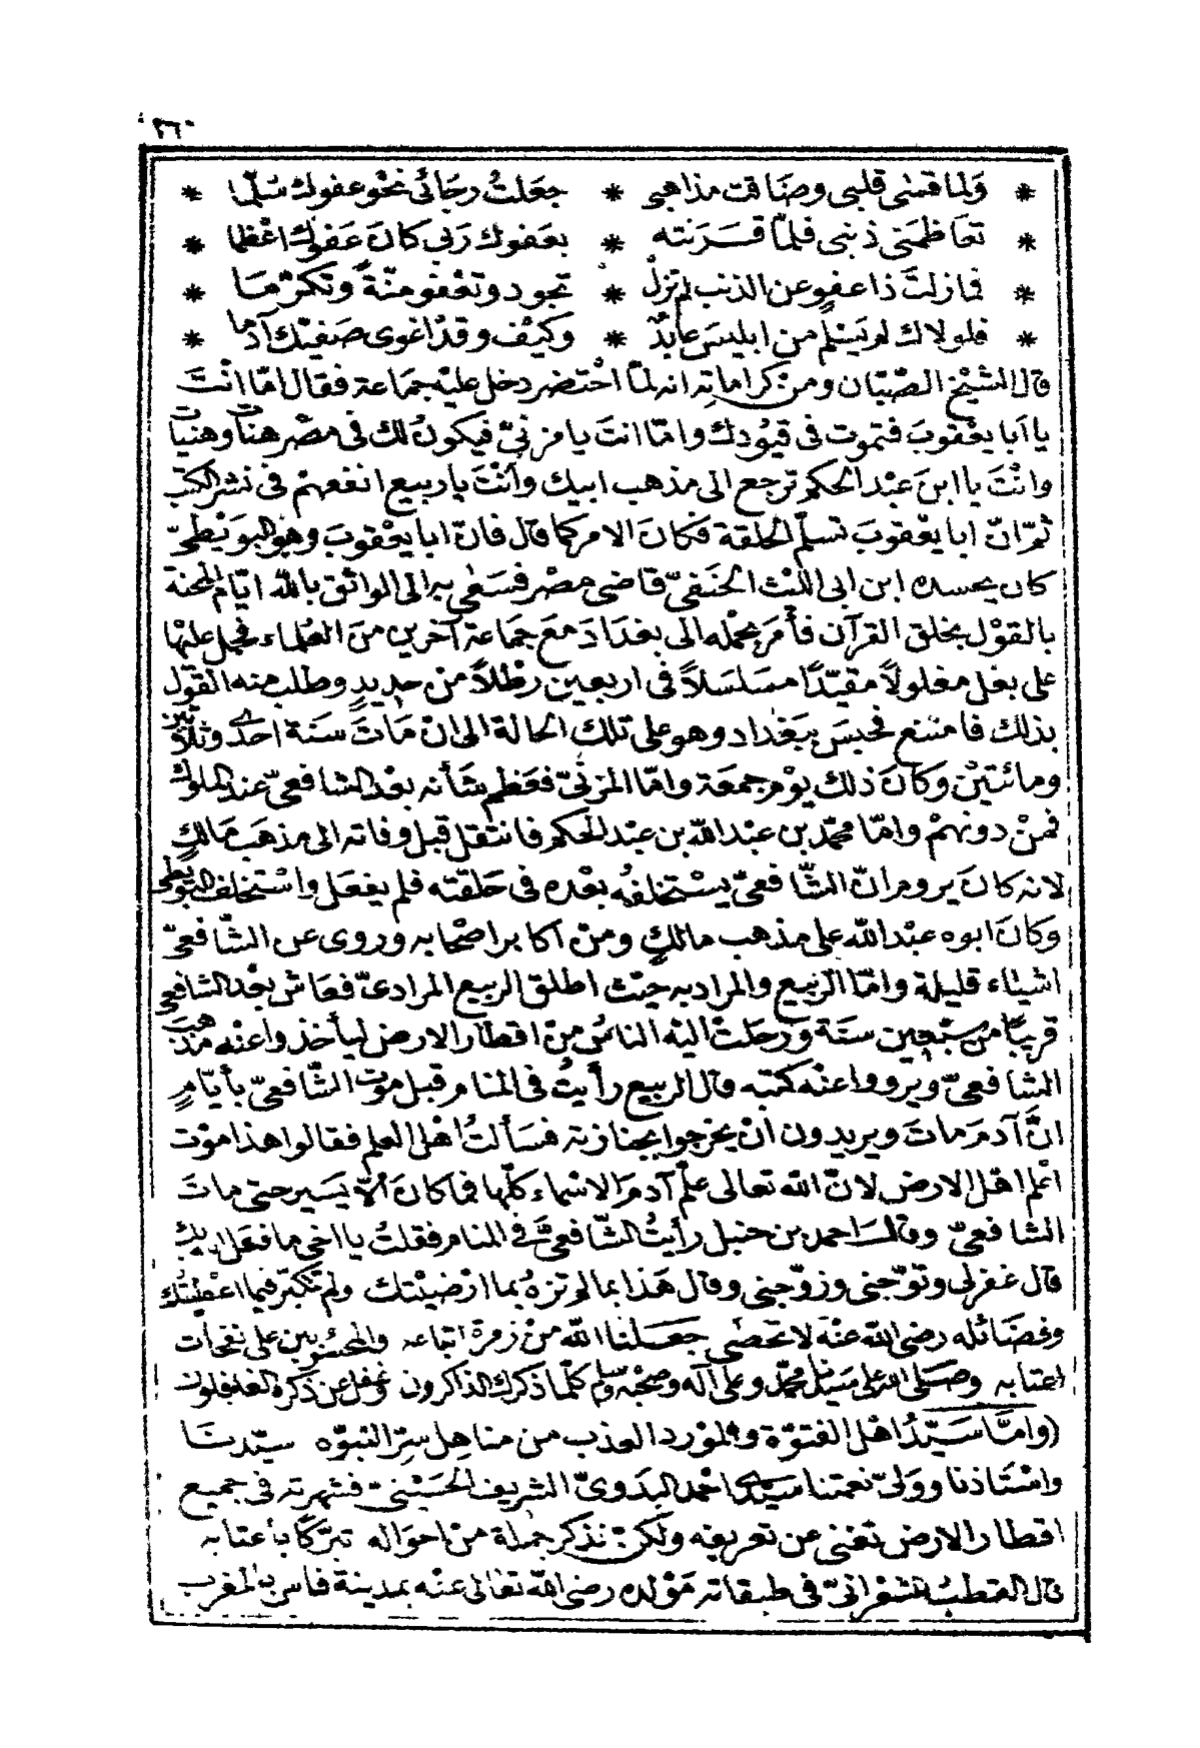 ٢٦٠
* وَلما قسٰى قلبى وضَاقت مذاهبى * جعَلتُ رجَائى نحْو عفوك سُلّما *
* تعَاظمَنى ذنبى فلمّا قَرنته * بعَفوك رَبى كانَ عَفوكَ اعْظما *
* فمازلتَ ذا عفوٍ عن الذنب لم تزلْ * تجود وتعْفو منّةً وتكرّمَا *
* فلولاك لم يَسْلم من ابليسَ عابدٌ * وكيْف وقدْ اغوى صَفيّك آدَما *
قال الشيْخ الصّبّان ومن كراماته انه لمّا احْتضر دخل عليْه جمَاعة فقال امّا انْتَ
يا اَبا يعْقوبَ فتموت فى قيُودك وامّا انتَ يا مزنىّ فيكونُ لك فى مصْر هناتٌ وهنيات
وانْتَ يا ابنَ عبْد الحكم ترجع الى مذهب ابيك وأنْتَ يا ربيع انفعهمْ فى نشر الكتب
ثمّ انّ ابا يعْقوبَ تسلّم الحلقة فكانَ الامر كما قال فانّ ابا يعْقوبَ وهو البوَيْطىّ
كان يحسده ابن ابى الليْث الحَنَفىّ قاضى مصْر فسَعٰى به الى الواثق بالله ايّام المحنة
بالقوْل بخلق القرآن فأمَر بحمْله الى بغدَادَ معَ جمَاعة آخرين منَ العُلماء فحمل عليْها
على بغل مغلولاً مقيّدًا مسَلسَلاً فى اربعين رطْلاً من حديدٍ وطلب منه القول
بذلك فامتنع فحبسَ ببَغْداد وهو على تلك الحالة الى انْ مَاتَ سَنة احدى وثلاثين
ومائتيْن وكانَ ذلك يوْم جمعَة وامّا المزنىّ فعَظم شأنه بعْد الشافعىّ عند الملوك
فمنْ دونهمْ وامّا محمّد بن عبْد الله بن عبْد الحكم فانتقل قبل وفاته الى مذهَب مَالك
لانه كانَ يروم انّ الشّافعىّ يسْتخلفُه بعْده فى حَلقته فلم يفعَل واسْتخلف البوَيْطى
وكانَ ابوه عبْد الله على مذهب مالكٍ ومنْ اكابر اصْحابه وروى عن الشّافعىّ
اشيَاء قليلة وامّا الرّبيع والمراد به حيْث اطلق الربيع المرادىّ فعَاش بعْد الشافعى
قريبًا من سَبْعين سَنة ورَحلتْ اليْه الناسُ منْ اقطار الارض ليأخذوا عنْه مذهبَ
الشافعىّ ويرووا عنْه كتبه قال الربيع رأيتُ فى المنام قبل موْت الشّافعىّ بأيّامٍ
انَّ آدمَ مَاتَ ويريدون انْ يخرجوا بجنازته فسَألتُ اهْل العلم فقالوا هذا موْت
اعْلم اهْل الارض لانّ الله تعالى علّم آدمَ الاسْماء كلّها فما كانَ الّا يَسير حتى ماتَ
الشافعىّ وقالَ احمد بن حنبل رأيتُ الشّافعىَّ فى المنام فقلتُ يا اخى ما فعَل الله بك
قال غفر لى وتوّجنى وزوّجنى وقال هَذا بما لم تزهُ بما ارْضيْتك ولم تتكبّر فيما اعْطيْتك
وفضَائله رضى الله عنْه لا تحصٰى جعَلنا الله منْ زمرة اتباعه والمحسُوبين على نفحَات
اعتابه وصَلى الله على سَيّدنا محمّد وعلى آله وصحْبه وسلم كلّما ذكرك الذاكرون وغفل عن ذكره الغافلون
(وامَّا سَيّدُ اهْل الفتوّة والموْرد العذب من مناهل سرّ النبوّه سيّدنَا
واسْتَاذنا ووَلىّ نعمتنا سيّدى احْمد البدَوىّ الشريف الحَسَيْنىّ فشهرته فى جميع
اقطار الارض تغنى عن تعريفه ولكن نذكر جمْلة من احوَاله تبرّكًا بأعتابه
قال القطبُ الشعْرانىّ فى طبقاته مَوْلده رضى الله تعَالى عنْه بمدينة فاس بالمغرب